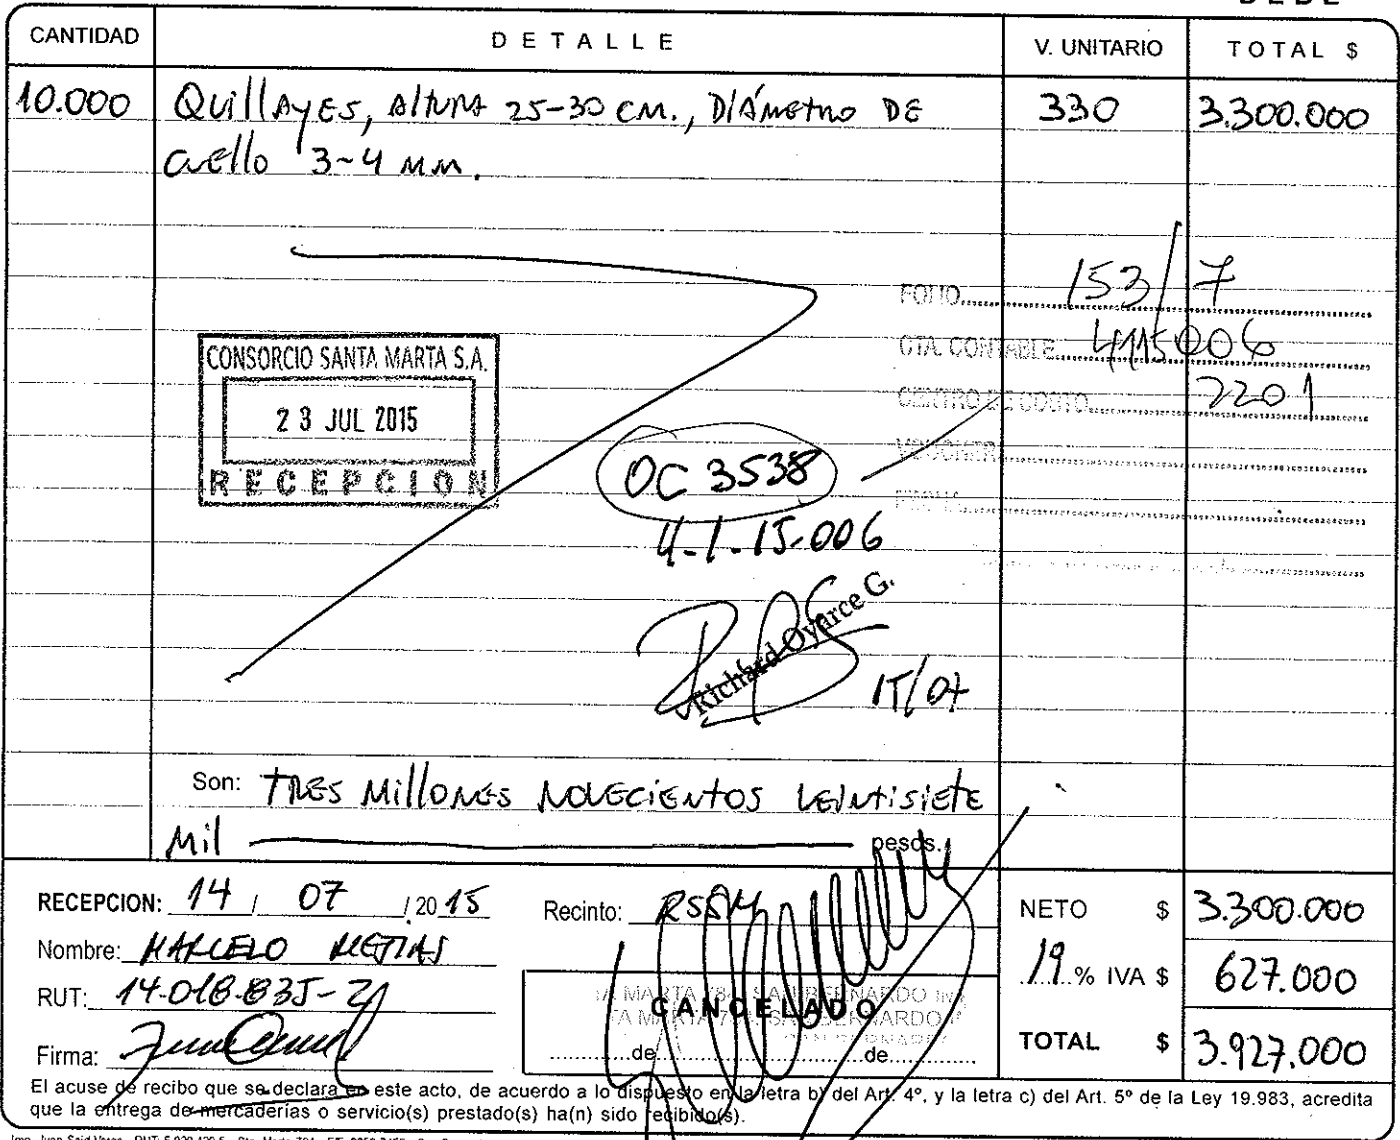 CANTIDAD DETALLE V. UNITARIO TOTAL $
10.000 Quillayes, Altura 25-30 cm., Diámetro de 330 3.300.000
cuello 3-4 mm.
FOLIO 153/7
CTA. CONTABLE 4115006
CENTRO DE COSTO 2201
VOUCHER
CONSORCIO SANTA MARTA S.A.
23 JUL 2015
RECEPCION
OC 3538
4-1-15-006
Richard Oyarce G.
15/07
Son: Tres Millones Novecientos Veintisiete
Mil pesos.
RECEPCION: 14 / 07 / 2015 Recinto: RSSM NETO $ 3.300.000
Nombre: Marcelo Mejias
19 % IVA $ 627.000
RUT: 14.018.835-2
CANCELADO
Firma: de de TOTAL $ 3.927.000
El acuse de recibo que se declara en este acto, de acuerdo a lo dispuesto en la letra b) del Art. 4º, y la letra c) del Art. 5º de la Ley 19.983, acredita
que la entrega de mercaderías o servicio(s) prestado(s) ha(n) sido recibido(s).